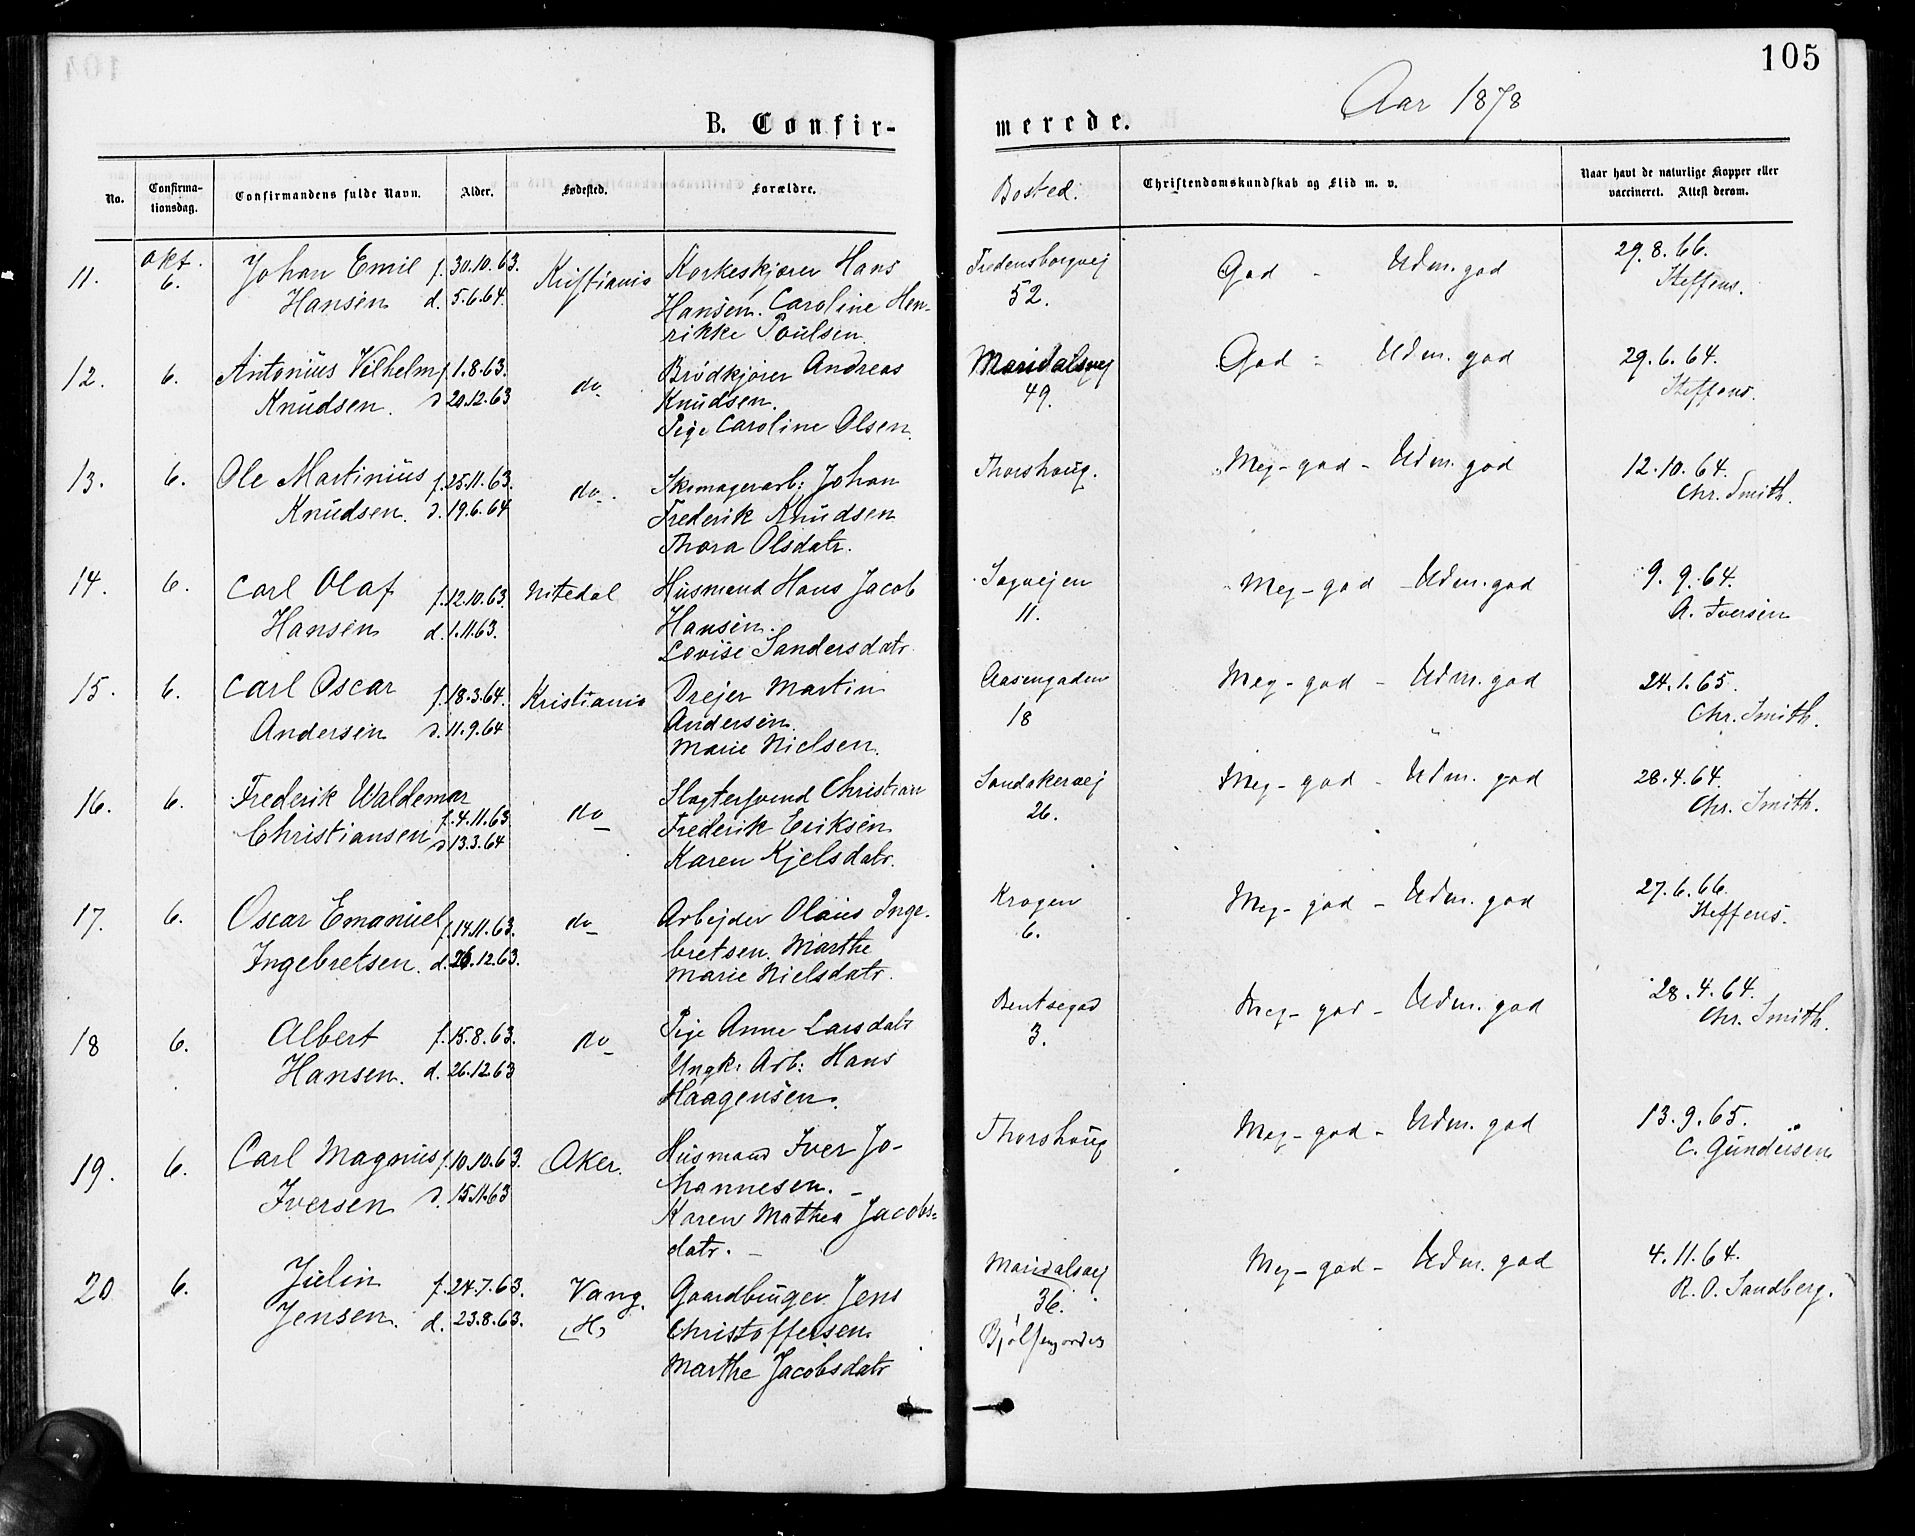 105
Aar 1878
B. Confir-
merede.
No.
Confirma-
tionsdag.
Confirmandens fulde Navn.
Alder.
Fødested.
Forældre.
Bosted.
Christendomskundskab og Flid m. v.
Naar havt de naturlige Kopper eller
vaccineret. Attest derom.
11. Okt. Johan Emil f. 30.10.63. Kristiania Korkeskjærer Hans Fredensborgvej God - Udm. god 29.8.66.
6. Hansen d. 5.6.64. Hansen. Caroline Hen- 52. Steffens.
rikke Poulsen.
12. 6. Antonius Vilhelm f. 1.8.63. do Brødkjører Andreas Maridalsvej God - Udm. god 29.6.64.
Knudsen. d. 20.12.63 Knudsen. 49. Steffens.
Pige Caroline Olsen.
13. 6. Ole Martinius f. 25.11.63. do. Skomagerarb: Johan Thorshoug. Meg- god - Udm. god 12.10.64.
Knudsen. d. 19.6.64 Frederik Knudsen Chr. Smith.
Thora Olsdatr.
14. 6. Carl Olaf f. 12.10.63. Nitedal Husmand Hans Jacob Sagvejen Meg- god - Udm. god 9.9.64.
Hansen d. 1.11.63. Hansen. 11. A. Iversen
Lovise Sandersdatr.
15. 6. Carl Oscar f. 18.3.64. Kristiania Drejer Martin Aasengaden Meg- god - Udm. god 24.1.65.
Andersen d. 11.9.64 Andersen. 18 Chr. Smith.
Marie Nielsen.
16. 6. Frederik Waldemar do Slagtersvend Christian Sandakervej Meg- god - Udm. god 28.4.64.
f. 4.11.63. Frederik Eriksen 26. Chr. Smith.
Christiansen d. 13.3.64 Karen Kjelsdatr.
17. 6. Oscar Emanuel f. 14.11.63. do Arbejder Olaus Inge- Krogen Meg- god - Udm. god 27.6.66.
Ingebretsen. d. 26.12.63. bretsen. Marthe 6. Steffens.
Marie Nielsdatr.
18 6. Albert f. 15.8.63. do Pige Anne Larsdatr Bentsegad Meg- god - Udm. god 28.4.64.
Hansen. d. 26.12.63 Ungk: Arb: Hans 3. Chr. Smith.
Haagensen.
19. 6. Carl Magnus f. 10.10.63. Aker. Husmand Iver Jo- Thorshoug Meg- god - Udm. god 13.9.65.
Iversen d. 15.11.63 hannesen. - C. Gundersen
Karen Mathea Jacobs=
datr. -
20 6. Julin f. 24.7.63. Vang. Gaardbruger Jens Maridalsvej Meg- god - Udm. god 4.11.64.
Jensen. d. 23.8.63. (H) Christoffersen 36. R. O. Sandberg.
Marthe Jacobsdatr